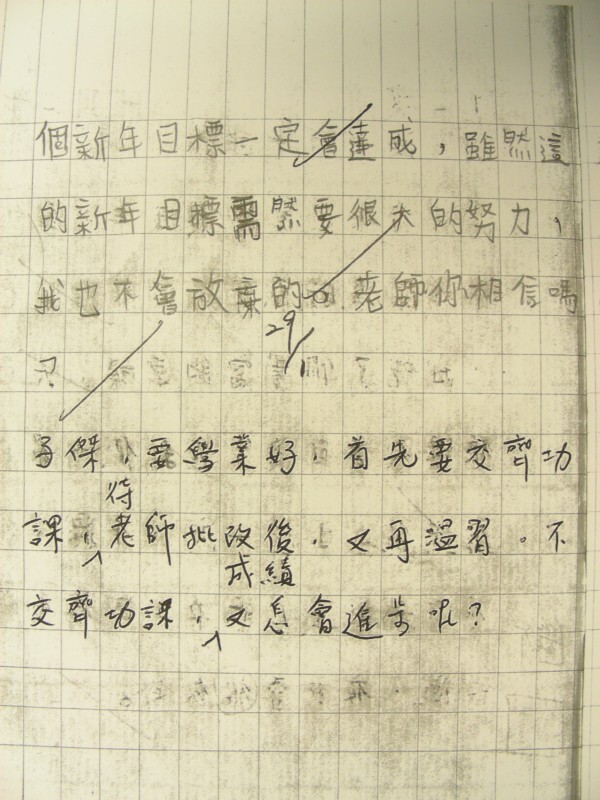 個新年目標一定會達成，雖然這
的新年目標需然要很大的努力，
我也不會放棄的。老師你相信嗎
29/1
子傑，要學業好，首先要交齊功
課，待老師批改後，又再溫習。不
交齊功課，成績又怎會進步呢？